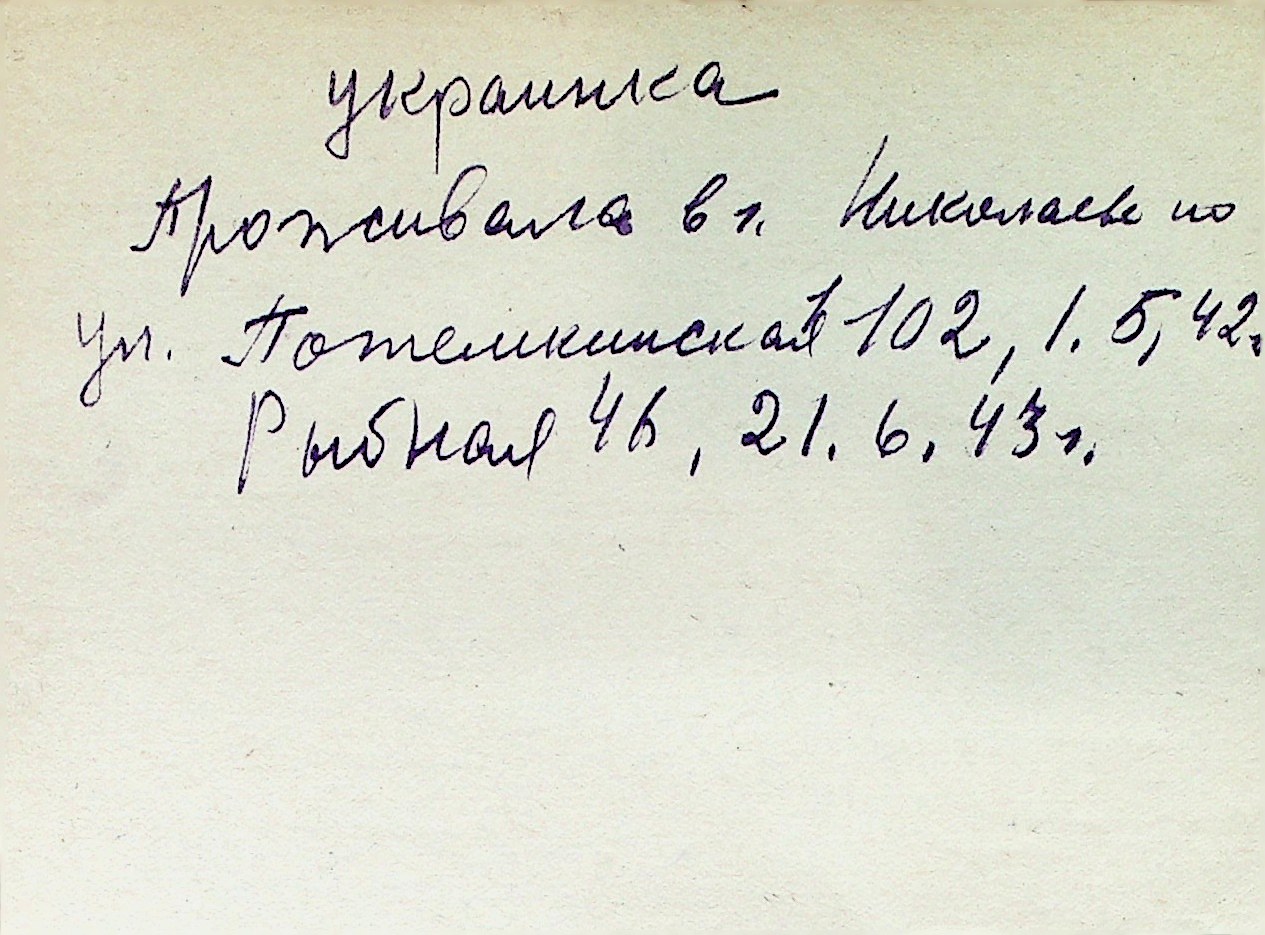 украинка
Проживала в г. Николаеве по
ул. Потемкинская 102, 1.5,42г
Рыбная 46, 21.6.43г.